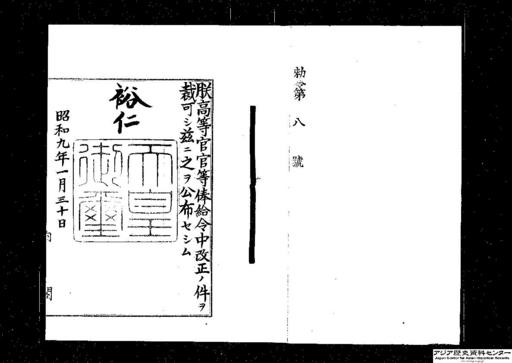 勅令第八號
朕高等官官等俸給令中改正ノ件ヲ
裁可シ茲ニ之ヲ公布セシム
裕仁
天皇御璽
昭和九年一月三十日
内閣
アジア歴史資料センター
Japan Center for Asian Historical Records